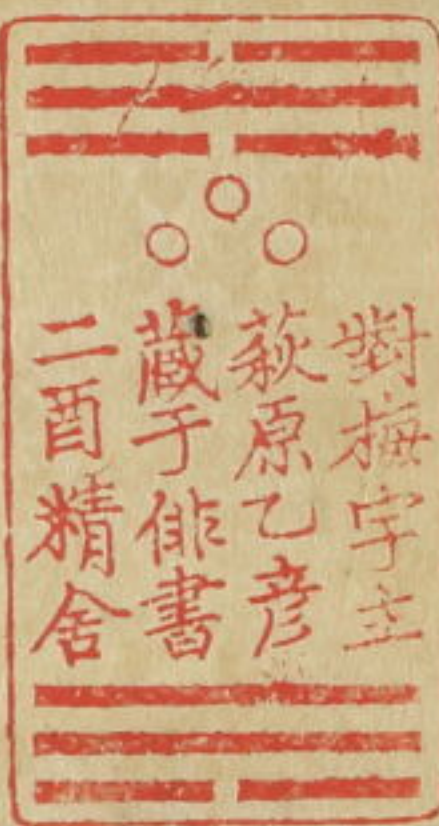 對梅宇主
萩原乙彦
蔵于俳書
二酉精舍